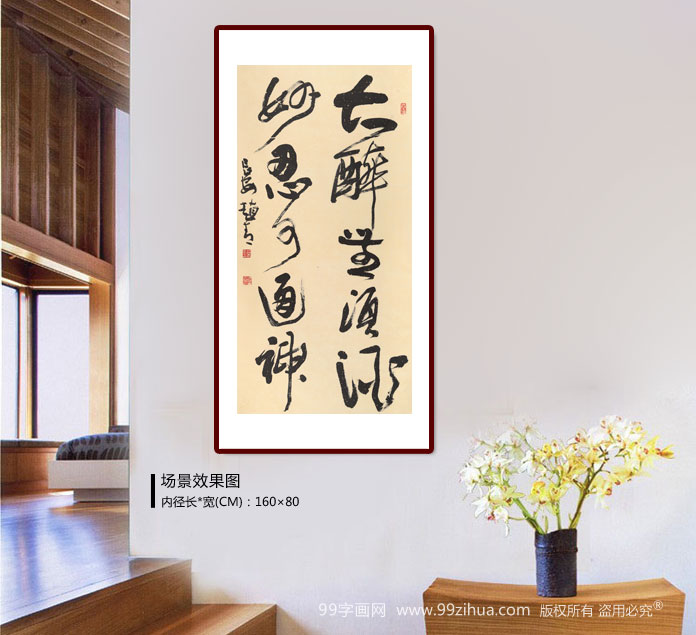 大醉無須酒
妙忍可通神
场景效果图
内径长*宽(CM)：160×80
99字画网 www.99zihua.com 版权所有 盗用必究®